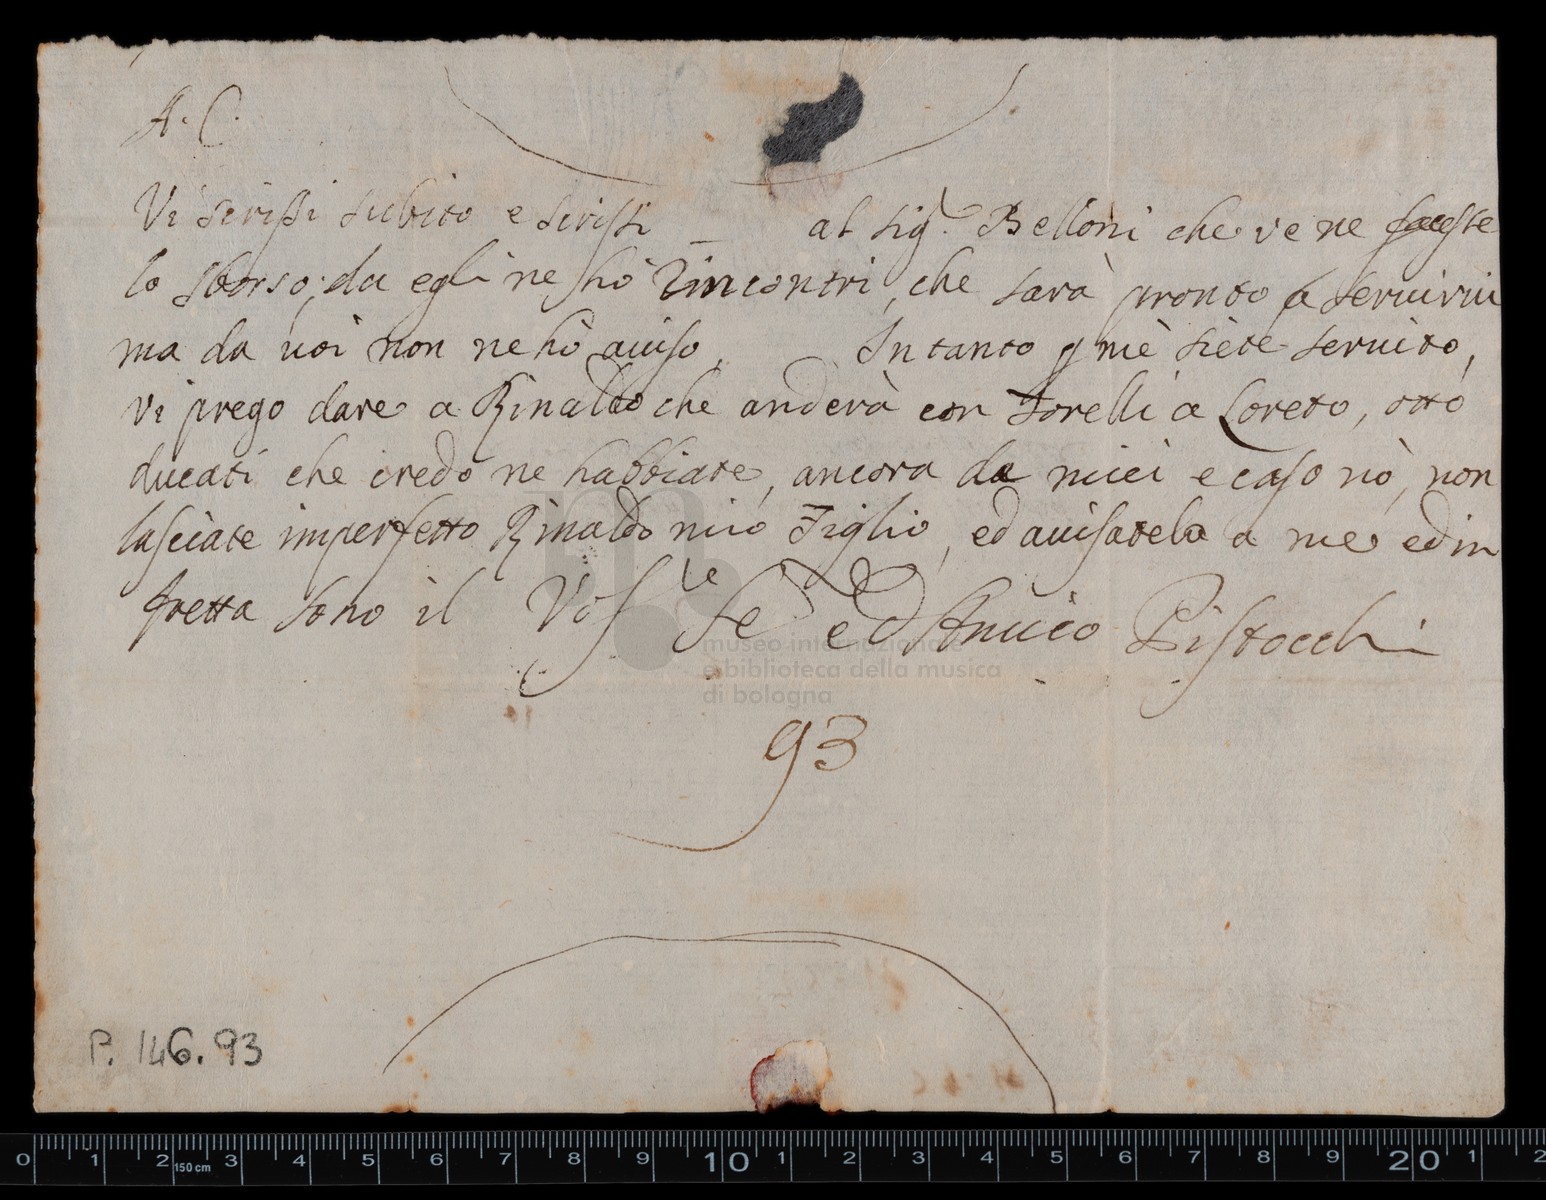 A. C.
Vi scrissi subito e scrissi _ al sig.r Belloni che ve ne faceste
lo sborso; da egli ne hò rincontri, che sarà pronto a seruirui
ma da uoi non ne hò auiso, Intanto p mè siete seruito,
vi prego dare a Rinaldo che anderà con Torelli a Loreto, otto
ducati che credo ne habbiate, ancora de miei e caso nò, non
lasciate imperfetto Rinaldo mio Figlio, ed auisatelo a me ed in
fretta sono il Vos. Se.le ed Amico Pistocchi
93
museo internazionale
e biblioteca della musica
di bologna
P. 146.93
0 1 2 150 cm 3 4 5 6 7 8 9 10 1 2 3 4 5 6 7 8 9 20 1 2